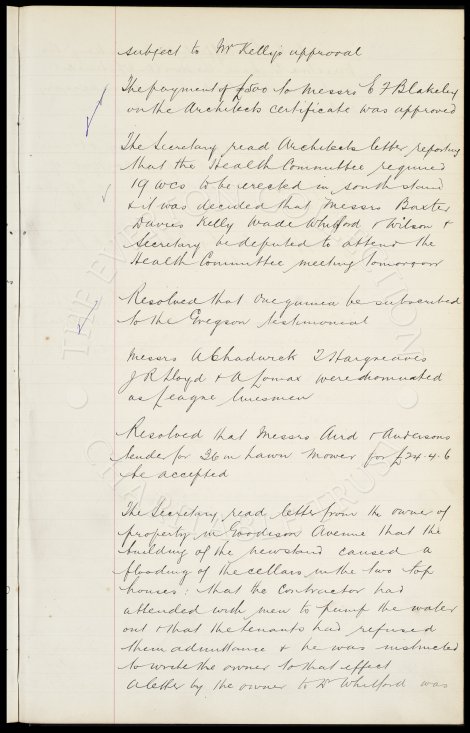 subject to Mr Kelly's approval
The payment of £500 to Messrs E F Blakeley
on the Architects certificate was approved
The Secretary read Architects letter reporting
that the Health Committee required
19 wcs to be erected in south stand
& it was decided that Messrs Baxter
Davies Kelly Wade Whitford & Wilson &
Secretary be deputed to attend the
Health Committee meeting tomorrow
Resolved that One guinea be subscribed
to the Gregson testimonial
Messrs A Chadwick T Hargreaves
J R Lloyd & A Lomax were nominated
as League linesmen
Resolved that Messrs Aird & Andersons
tender for 26 in Lawn Mower for £24-4-6
be accepted
The Secretary read letter from the owner of
property in Goodison Avenue that the
building of the new stand caused a
flooding of the cellars in the two top
houses: that the Contractor had
attended with men to pump the water
out & that the tenants had refused
them admittance & he was instructed
to write the owner to that effect
A letter by the owner to Dr Whitford was
THE EVERTON COLLECTION
CHARITABLE TRUST